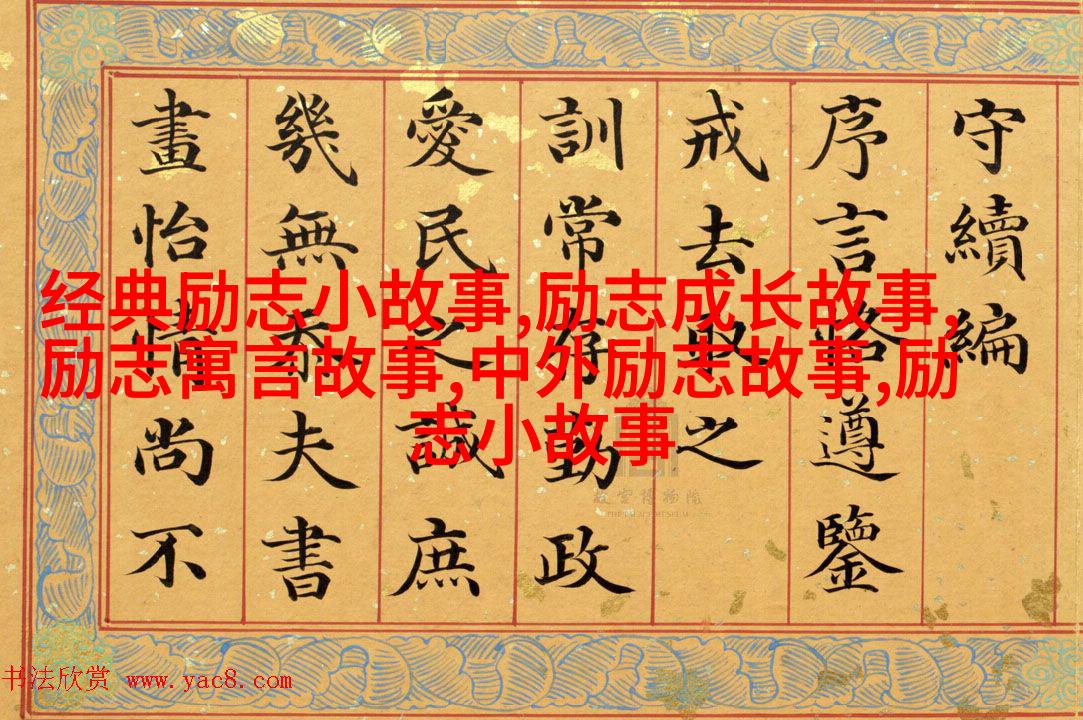 守續編
序言略遵鑒
戒去取之
訓常存勤政
愛民之誠庶
幾無忝夫書
畫怡情尚不
经典励志小故事,励志成长故事,
励志寓言故事,中外励志故事,励
志小故事
故宫博物院
THE PALACE MUSEUM
书法欣赏 www.yac8.com